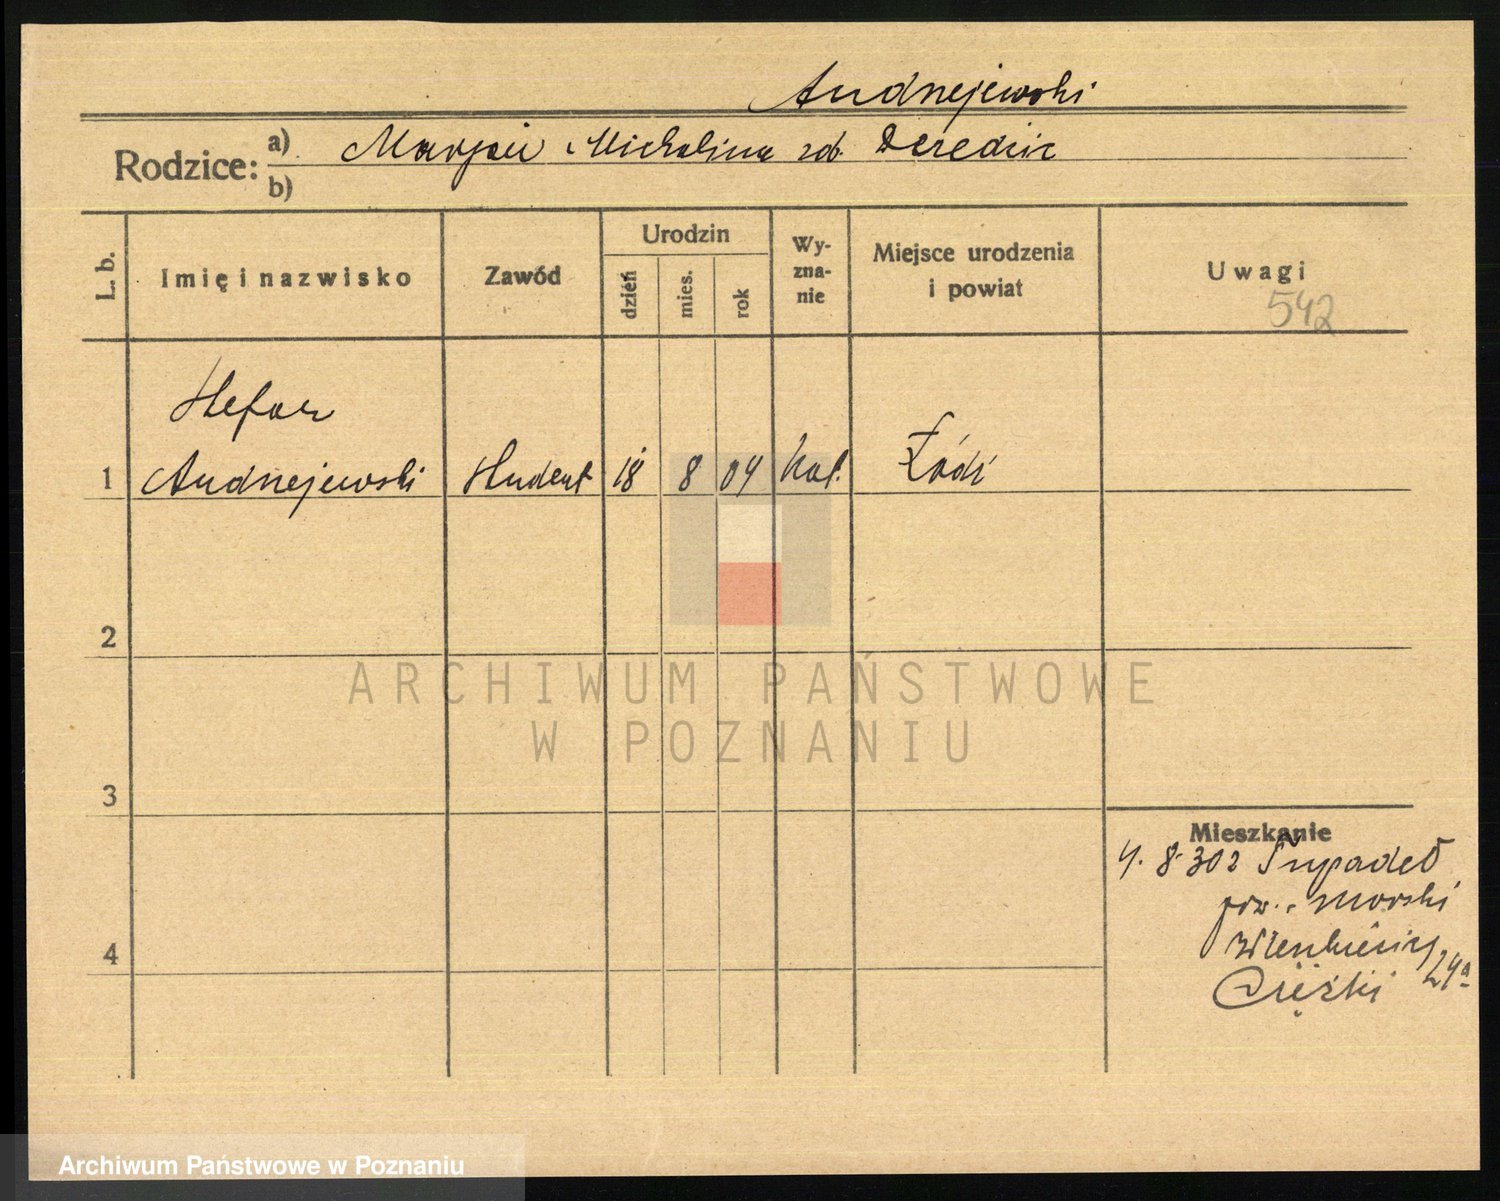 Andrzejewski
Rodzice:
a) Marjan i Michalina zd.
b)
L. b.
Imię i nazwisko
Zawód
Urodzin
dzień
mies.
rok
Wy-
zna-
nie
Miejsce urodzenia
i powiat
Uwagi
542
Stefan
1 Andrzejewski Student 18 8 04 kat. Łódź
2
3
4
Mieszkanie
4. 8. 30z
pow. morski
24a
ARCHIWUM PAŃSTWOWE
W POZNANIU
Archiwum Państwowe w Poznaniu